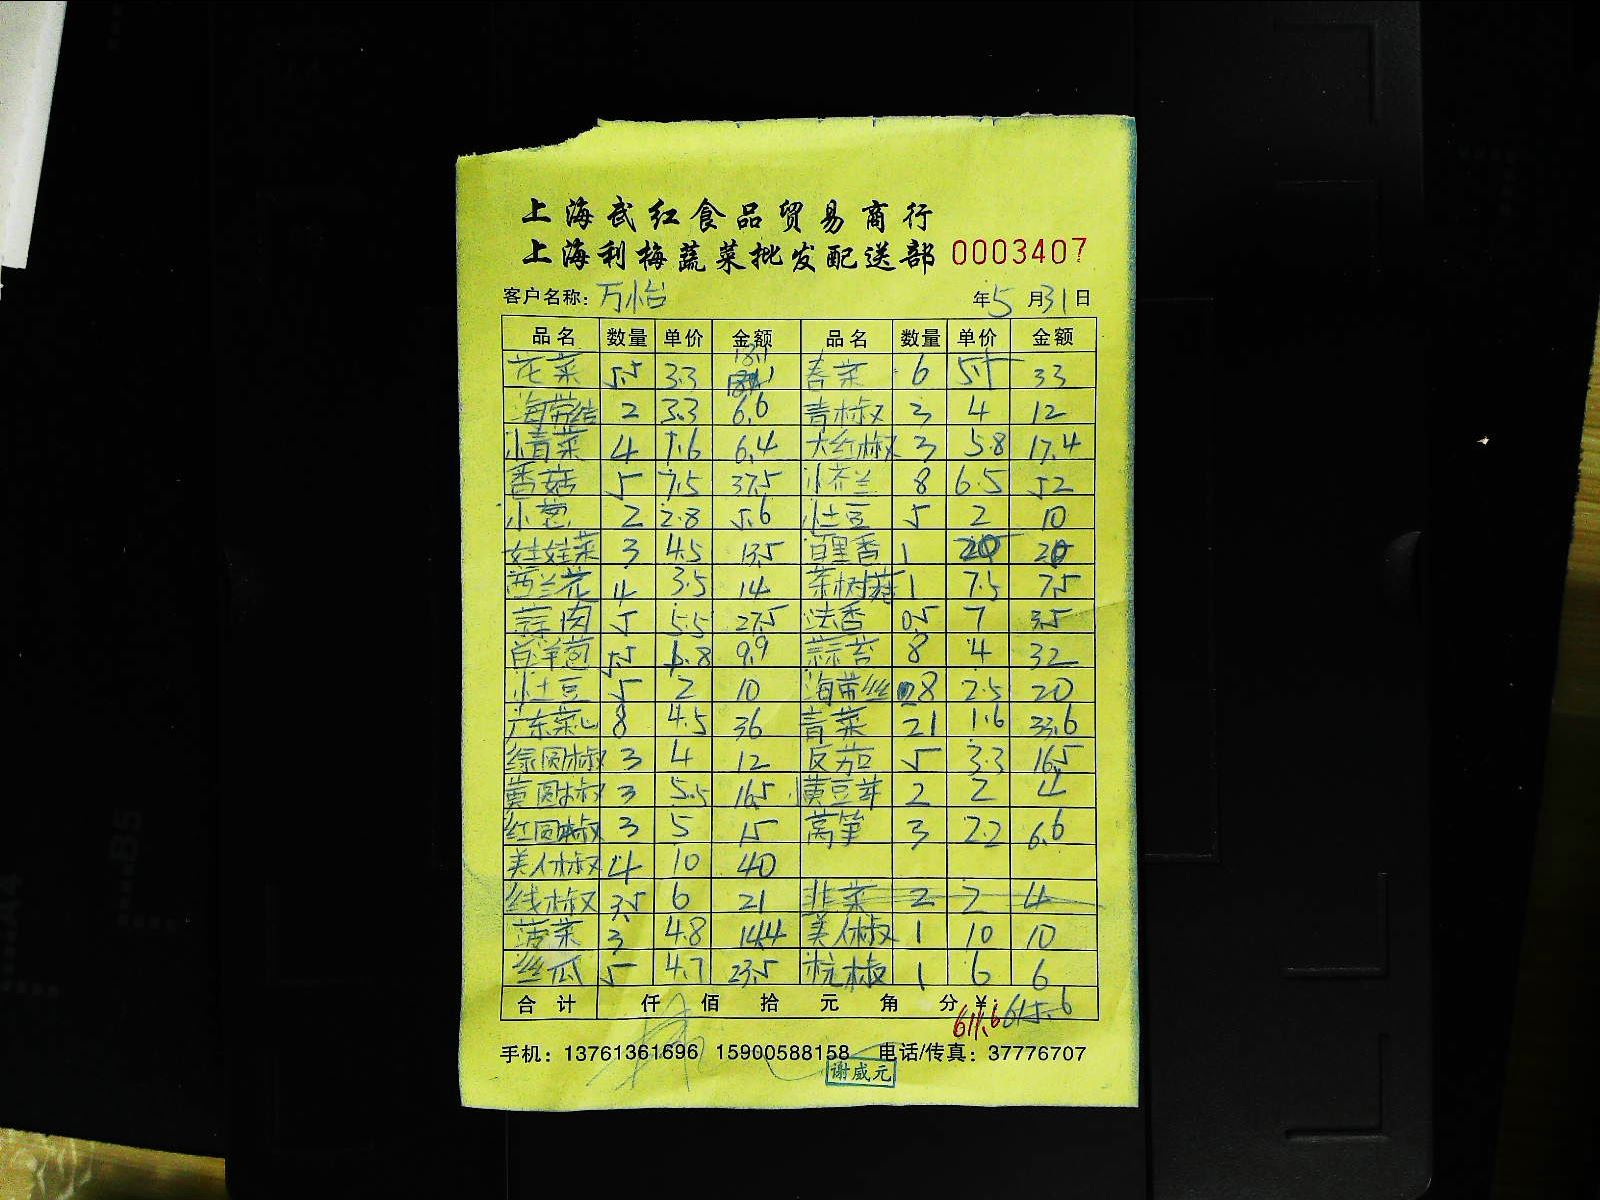 上海武红食品贸易商行
上海利梅蔬菜批发配送部 0003407
客户名称: 万怡 年 5 月 31 日
品名 数量 单价 金额 品名 数量 单价 金额
花菜 5.5 3.3 18.1 春菜 6 5.5 33
海带结 2 3.3 6.6 青椒 3 4 12
小青菜 4 1.6 6.4 大红椒 3 5.8 17.4
香菇 5 7.5 37.5 小芥兰 8 6.5 52
小葱 2 2.8 5.6 小土豆 5 2 10
娃娃菜 3 4.5 13.5 百里香 1 20 20
西兰花 4 3.5 14 茶树菇 1 7.5 7.5
蒜肉 5 5.5 27.5 法香 0.5 7 3.5
白洋葱 5.5 1.8 9.9 蒜苔 8 4 32
小土豆 5 2 10 海带丝 8 2.5 20
广东菜心 8 4.5 36 青菜 21 1.6 33.6
绿圆椒 3 4 12 反茄 5 3.3 16.5
黄圆椒 3 5.5 16.5 黄豆芽 2 2 4
红圆椒 3 5 15 莴笋 3 2.2 6.6
美人椒 4 10 40
线椒 3.5 6 21 韭菜 2 2 4
菠菜 3 4.8 14.4 美人椒 1 10 10
丝瓜 5 4.7 23.5 杭椒 1 6 6
合计 仟 佰 拾 元 角 分 ¥: 615.6
611.6
手机: 13761361696 15900588158 电话/传真: 37776707
谢威元